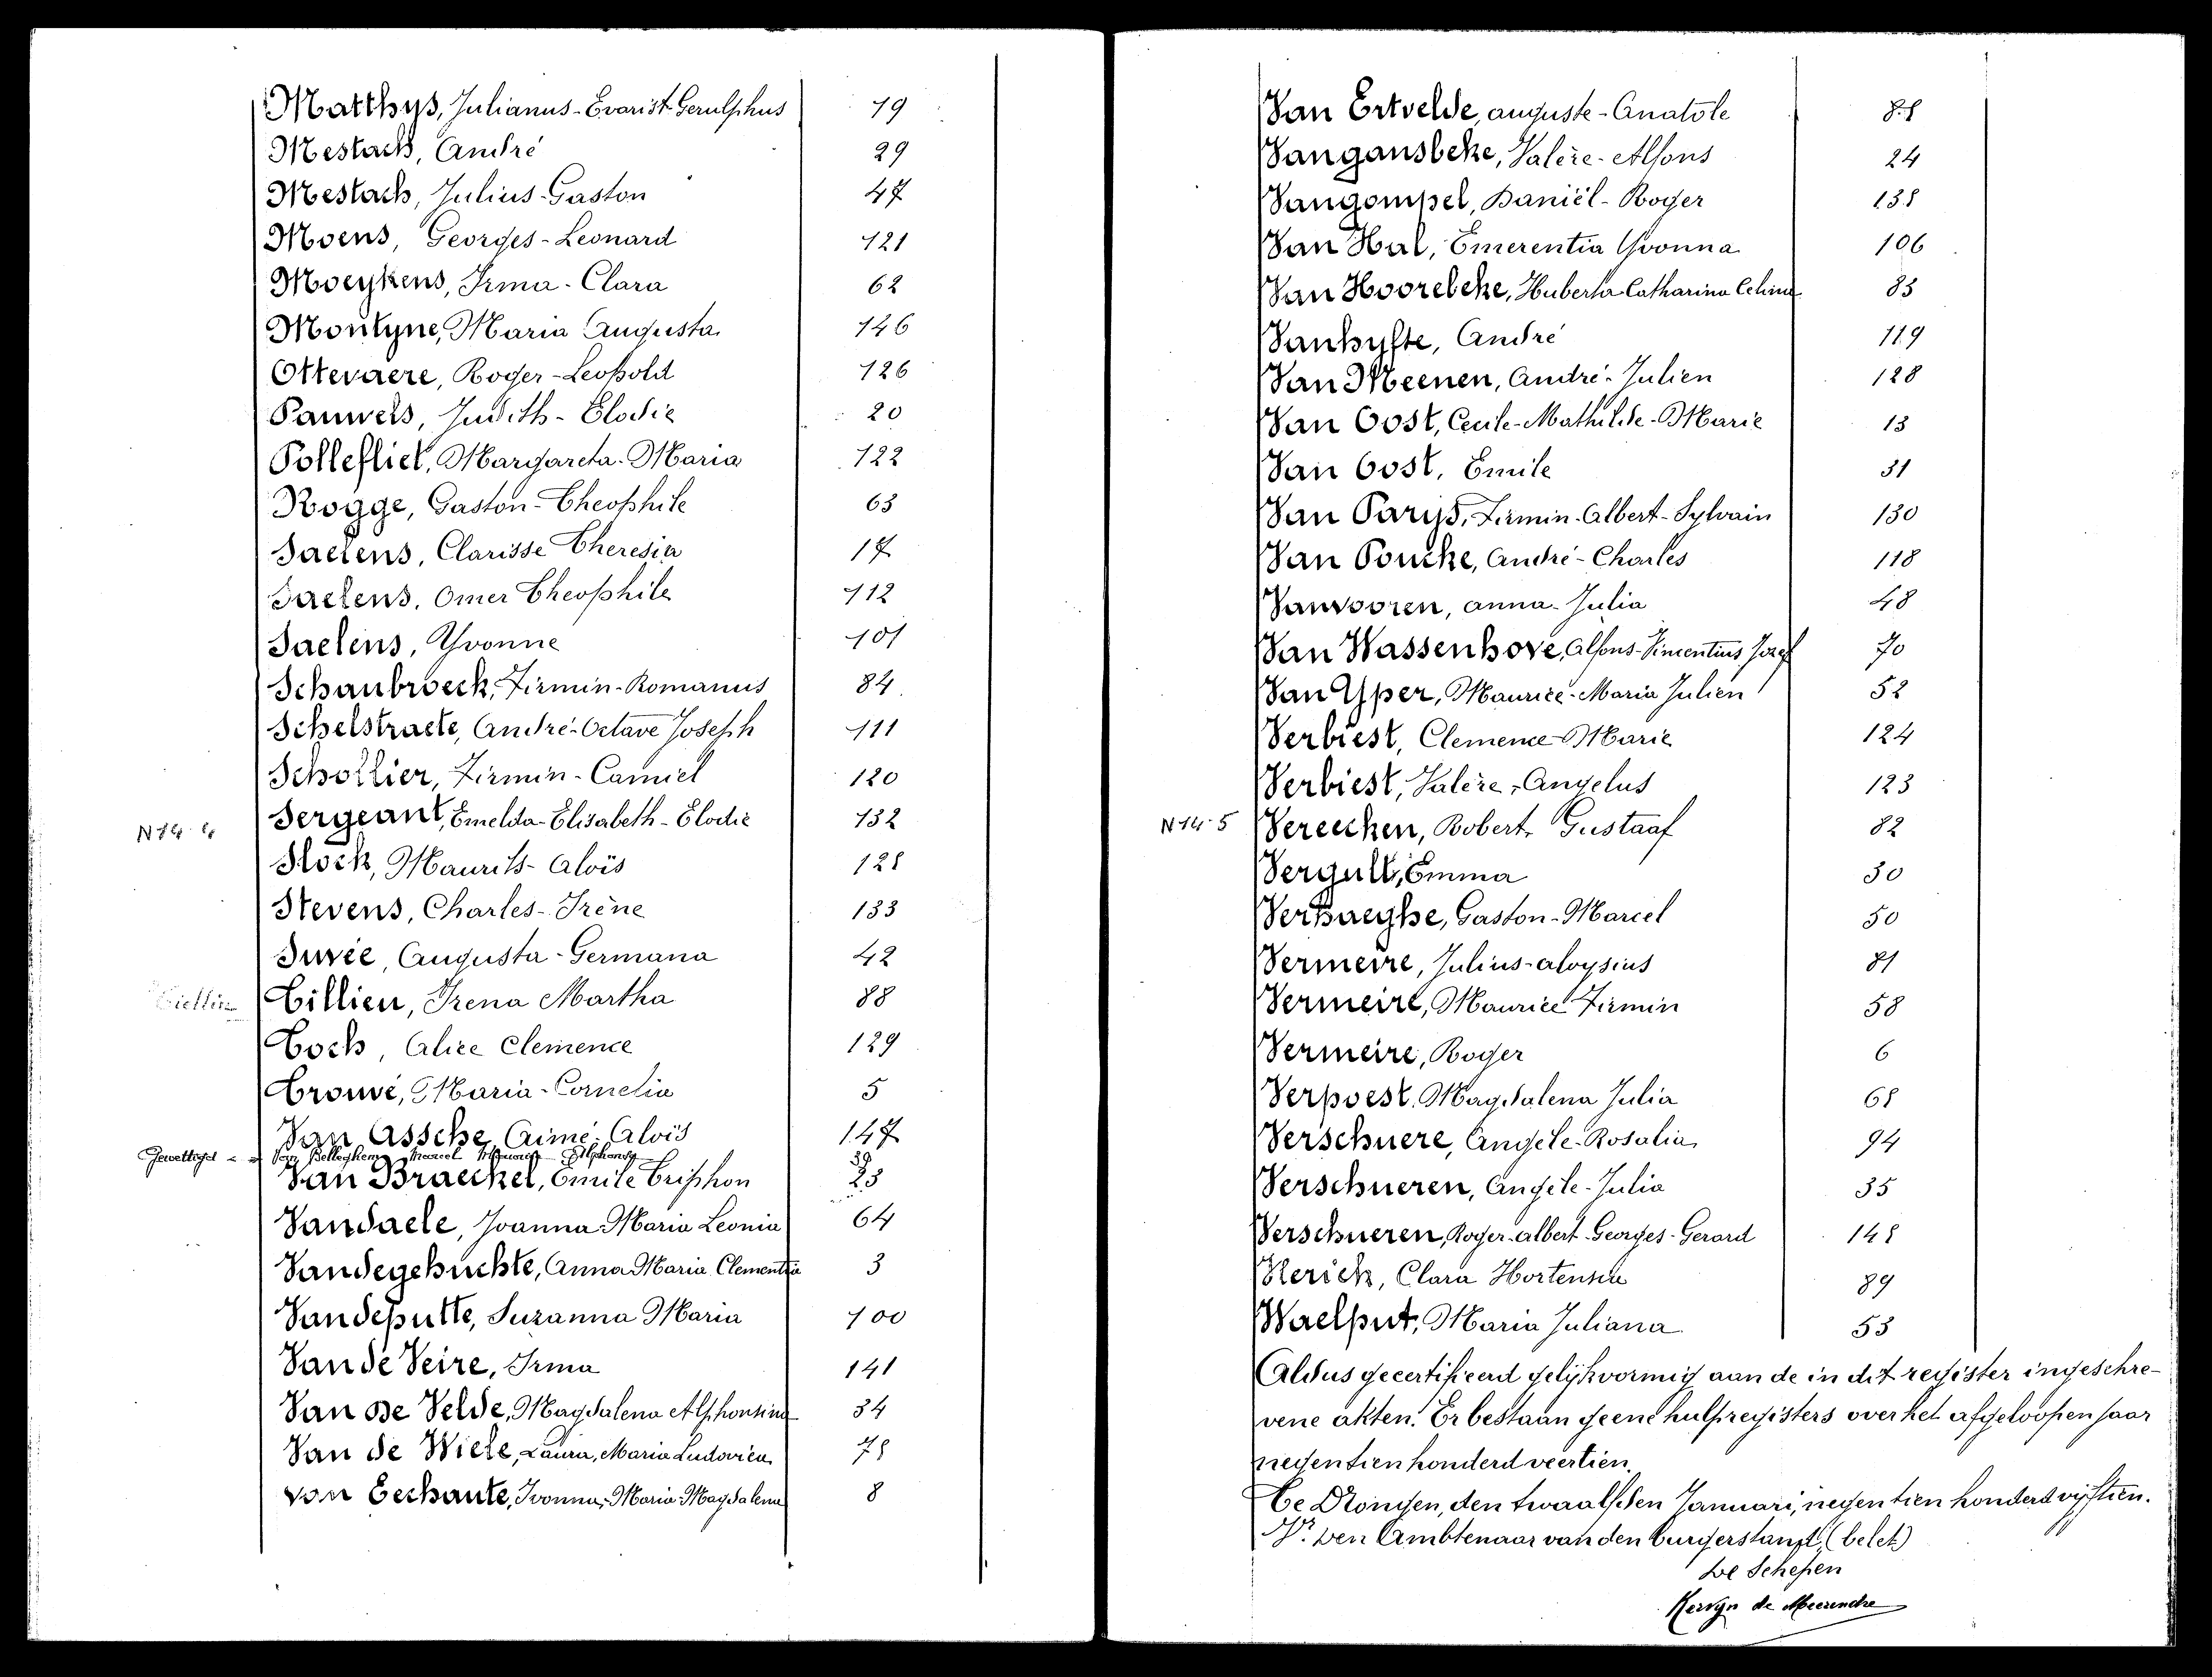 Matthys, Julianus-Evarist Gerulphus 19
Mestach, André 29
Mestach, Julius-Gaston 47
Moens, Georges-Leonard 121
Moeykens, Irma-Clara 62
Montyne, Maria Augusta 146
Ottevaere, Roger-Leopold 126
Pauwels, Judith-Elodie 20
Pollefliet, Margareta-Maria 122
Rogge, Gaston-Theophile 63
Saelens, Clarisse Theresia 17
Saelens, Omer Theophile 112
Saelens, Yvonne 101
Schaubroeck, Firmin-Romanus 84
Schelstraete, André-Octave Joseph 111
Schollier, Firmin-Camiel 120
Sergeant, Emelda-Elisabeth-Elodie 132
Stock, Maurits-Aloïs 128
Stevens, Charles-Irène 133
Suvée, Augusta-Germana 42
Tillien, Irena Martha 88
Toch, Alice Clemence 129
Trouvé, Maria-Cornelia 5
Van Assche, Aimé-Aloïs 147
Gewettigd Van Belleghem Marcel Maurice Alphonse 39
Van Braeckel, Emile Triphon 23
Vandaele, Joanna Maria Leonia 64
Vandegehuchte, Anna Maria Clementia 3
Vandeputte, Suzanna Maria 100
Van de Veire, Irma 141
Van de Velde, Magdalena Alphonsina 34
Van de Wiele, Laura, Maria Ludovica 78
Van Eechaute, Ivonna, Maria Magdalena 8
Van Ertvelde, Auguste-Anatole 88
Vangansbeke, Valère-Alfons 24
Vangompel, Daniël-Roger 138
Van Hal, Emerentia Yvonna 106
Van Hoorebeke, Huberta Catharina Celina 83
Vanhyfte, André 119
Van Meenen, André-Julien 128
Van Oost, Cecile-Mathilde-Marie 13
Van Oost, Emile 31
Van Parijs, Firmin-Albert-Sylvain 130
Van Poucke, André-Charles 118
Vanvooren, Anna-Julia 48
Van Wassenhove, Alfons-Vincentius Jozef 70
Van Yper, Maurice-Maria Julien 52
Verbiest, Clemence Marie 124
Verbiest, Valère-Angelus 123
N 14 5 Vereecken, Robert Gustaaf 82
Vergult, Emma 30
Verhaeghe, Gaston-Marcel 50
Vermeire, Julius-Aloysius 81
Vermeire, Maurice Firmin 58
Vermeire, Roger 6
Verpoest, Magdalena Julia 68
Verschuere, Angele-Rosalia 94
Verschueren, Angele-Julia 35
Verschueren, Roger-Albert-Georges-Gerard 148
Vlerick, Clara Hortensia 89
Waelput, Maria Juliana 53
Aldus gecertifieerd gelijkvormig aan de in dit register ingeschre-
vene akten. Er bestaan geene hulpregisters over het afgeloopen jaar
negentien honderd veertien.
Te Drongen, den twaalfden Januari, negentien honderd vijftien.
Vr. Den Ambtenaar van den burgerstand, (belet)
De Schepen
Kervyn de Meerendre